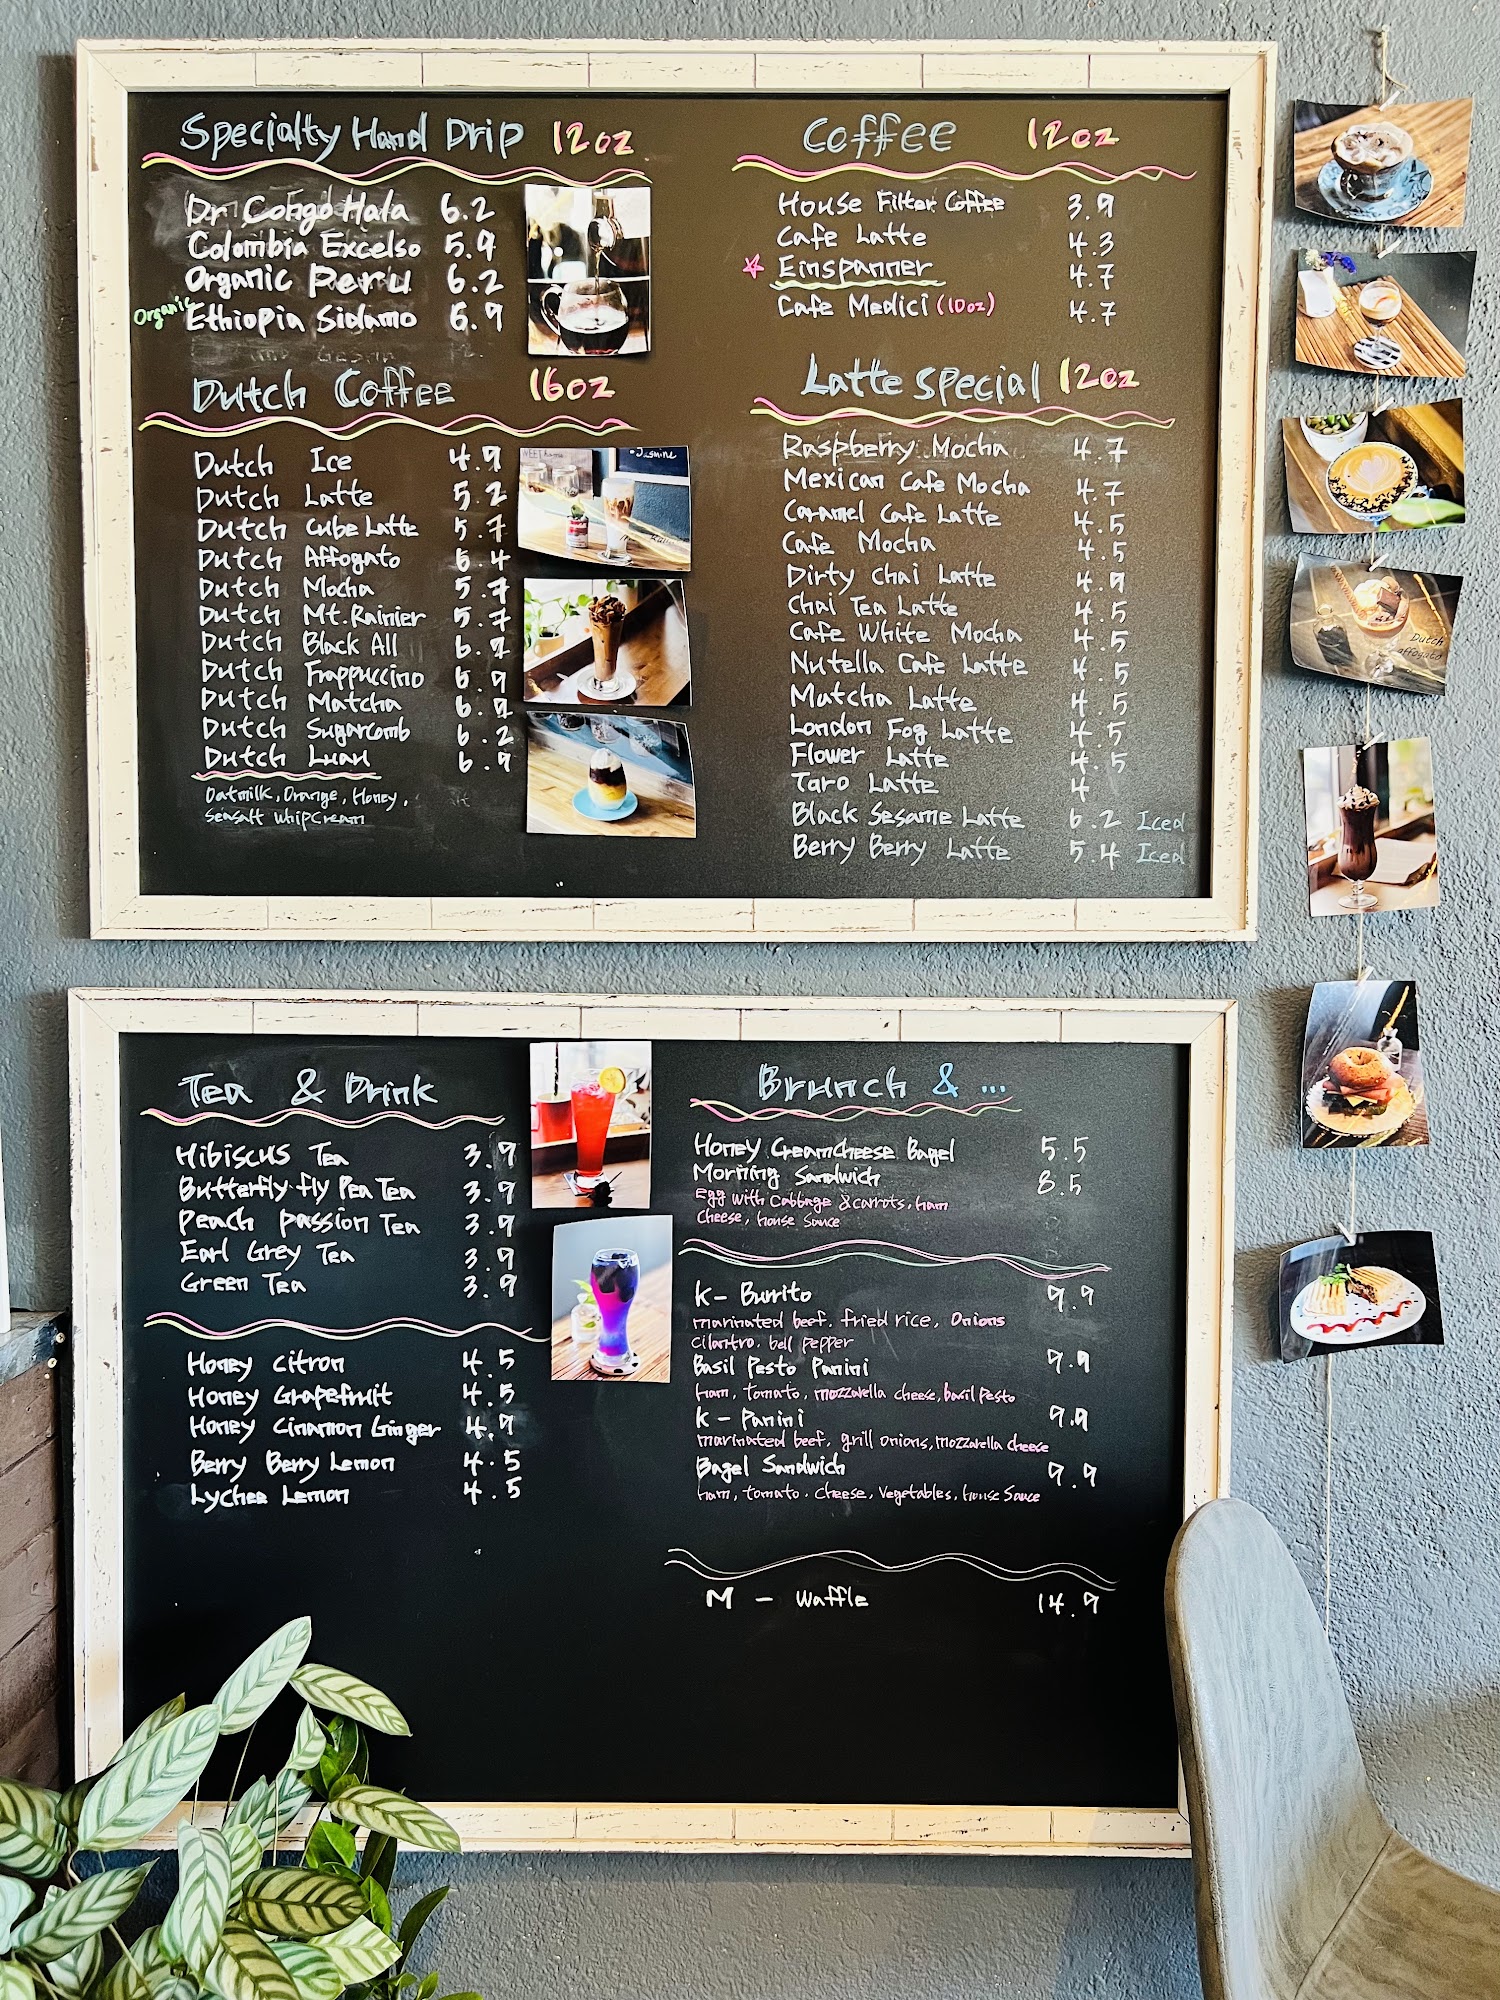 Specialty Hand Drip 12oz
Dr Congo Hala 6.2
Colombia Excelso 5.9
Organic Peru 6.2
Organic Ethiopia Sidamo 6.9
Dutch Coffee 16oz
Dutch Ice 4.9
Dutch Latte 5.2
Dutch Cube Latte 5.7
Dutch Affogato 6.4
Dutch Mocha 5.7
Dutch Mt.Rainier 5.7
Dutch Black All
Dutch Frappuccino 6.9
Dutch Matcha
Dutch Sugarcomb 6.2
Dutch Luau 6.9
Oatmilk, Orange, Honey,
Seasalt whipcream
Coffee 12oz
House Filter Coffee 3.9
Cafe Latte 4.3
Einspanner 4.7
Cafe Medici (10oz) 4.7
Latte Special 12oz
Raspberry Mocha 4.7
Mexican Cafe Mocha 4.7
Caramel Cafe Latte 4.5
Cafe Mocha 4.5
Dirty Chai Latte 4.9
Chai Tea Latte 4.5
Cafe White Mocha 4.5
Nutella Cafe Latte 4.5
Matcha Latte 4.5
London Fog Latte 4.5
Flower Latte 4.5
Taro Latte 4
Black Sesame Latte 6.2 Iced
Berry Berry Latte 5.4 Iced
Jasmine
Dutch
affogato
Tea & Drink
Hibiscus Tea 3.9
Butterfly fly Pea Tea 3.9
Peach passion Tea 3.9
Earl Grey Tea 3.9
Green Tea 3.9
Honey citron 4.5
Honey Grapefruit 4.5
Honey Cinamon Ginger 4.9
Berry Berry Lemon 4.5
Lychee Lemon 4.5
Brunch & ...
Honey Creamcheese Bagel 5.5
Morning Sandwich 8.5
Egg with Cabbage & carrots, ham
Cheese, house Sauce
K- Burrito 9.9
marinated beef. fried rice, Onions
cilantro. bell pepper
Basil Pesto Panini 9.9
ham, tomato, mozzarella cheese, basil Pesto
K- Panini 9.9
marinated beef, grill onions, mozzarella cheese
Bagel Sandwich 9.9
ham, tomato. cheese, Vegetables, house Sauce
M - Waffle 14.9